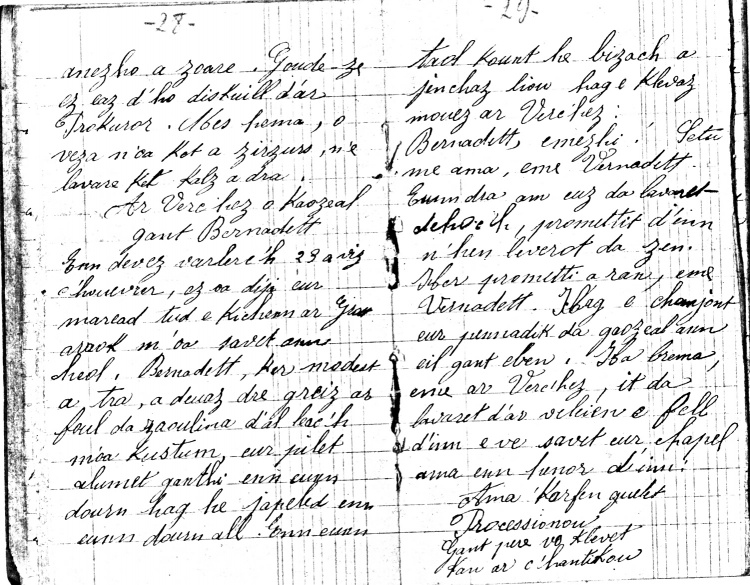 -27-
anezho a zoare. Goude-ze
ez eaz d'ho diskuill d'ar
Prokuror. Mes hema, o
veza n'oa ket a zirzurs, n'e
lavare ket kalz a dra.
Ar Verc'hez o kaozeal
gant Bernadett
Enn devez varlerc'h 23 a viz
c'houevrer, ez oa dija eur
maread tud e kichenn ar
araok m'oa savet ann
heol. Bernadett, ker modest
a tra, a deuaz dre greiz ar
foul da zaoulina d'al leac'h
m'oa kustum, eur pilet
alumet ganthi enn eunn
dourn hag he japeled enn
eunn dourn all. Enn eunn
-29-
taol kount he bizach a
jenchaz liou hag e klevaz
mouez ar Verc'hez:
Bernadett, emezhi! Setu
me ama, eme Vernadett.
Eunn dra am euz da lavaret
dehoc'h, promettit d'inn
n'hen leverot da zen.
Her prometti a ran, eme
Vernadett. Hag e chanjont
eur pennadik da gaozeal ann
eil gant eben. Ha brema,
eme ar Verc'hez, it da
lavaret d'ar veleien e fell
d'inn e ve savet eur chapel
ama enn henor d'inn:
Ama karfen guelet
Processionou
Gant pere vo klevet
Kan ar c'hantikou